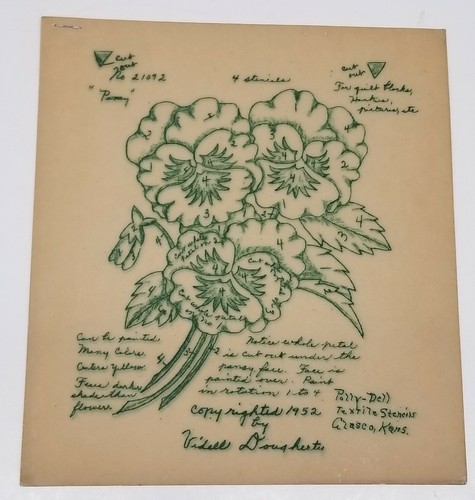 cut out
No 21092
"Pansy"
4 stencils
cut out
For quilt blocks,
pictures, etc
Can be painted
Many Colors.
Center Yellow
Face darker
shade than
flowers.
Notice whole petal
is cut out under the
pansy face. Face is
painted over. Paint
in rotation 1 to 4.
Polly-Dell
Textile Stencils
Glasco, Kans.
copyrighted 1952
by
Videll Dougherty